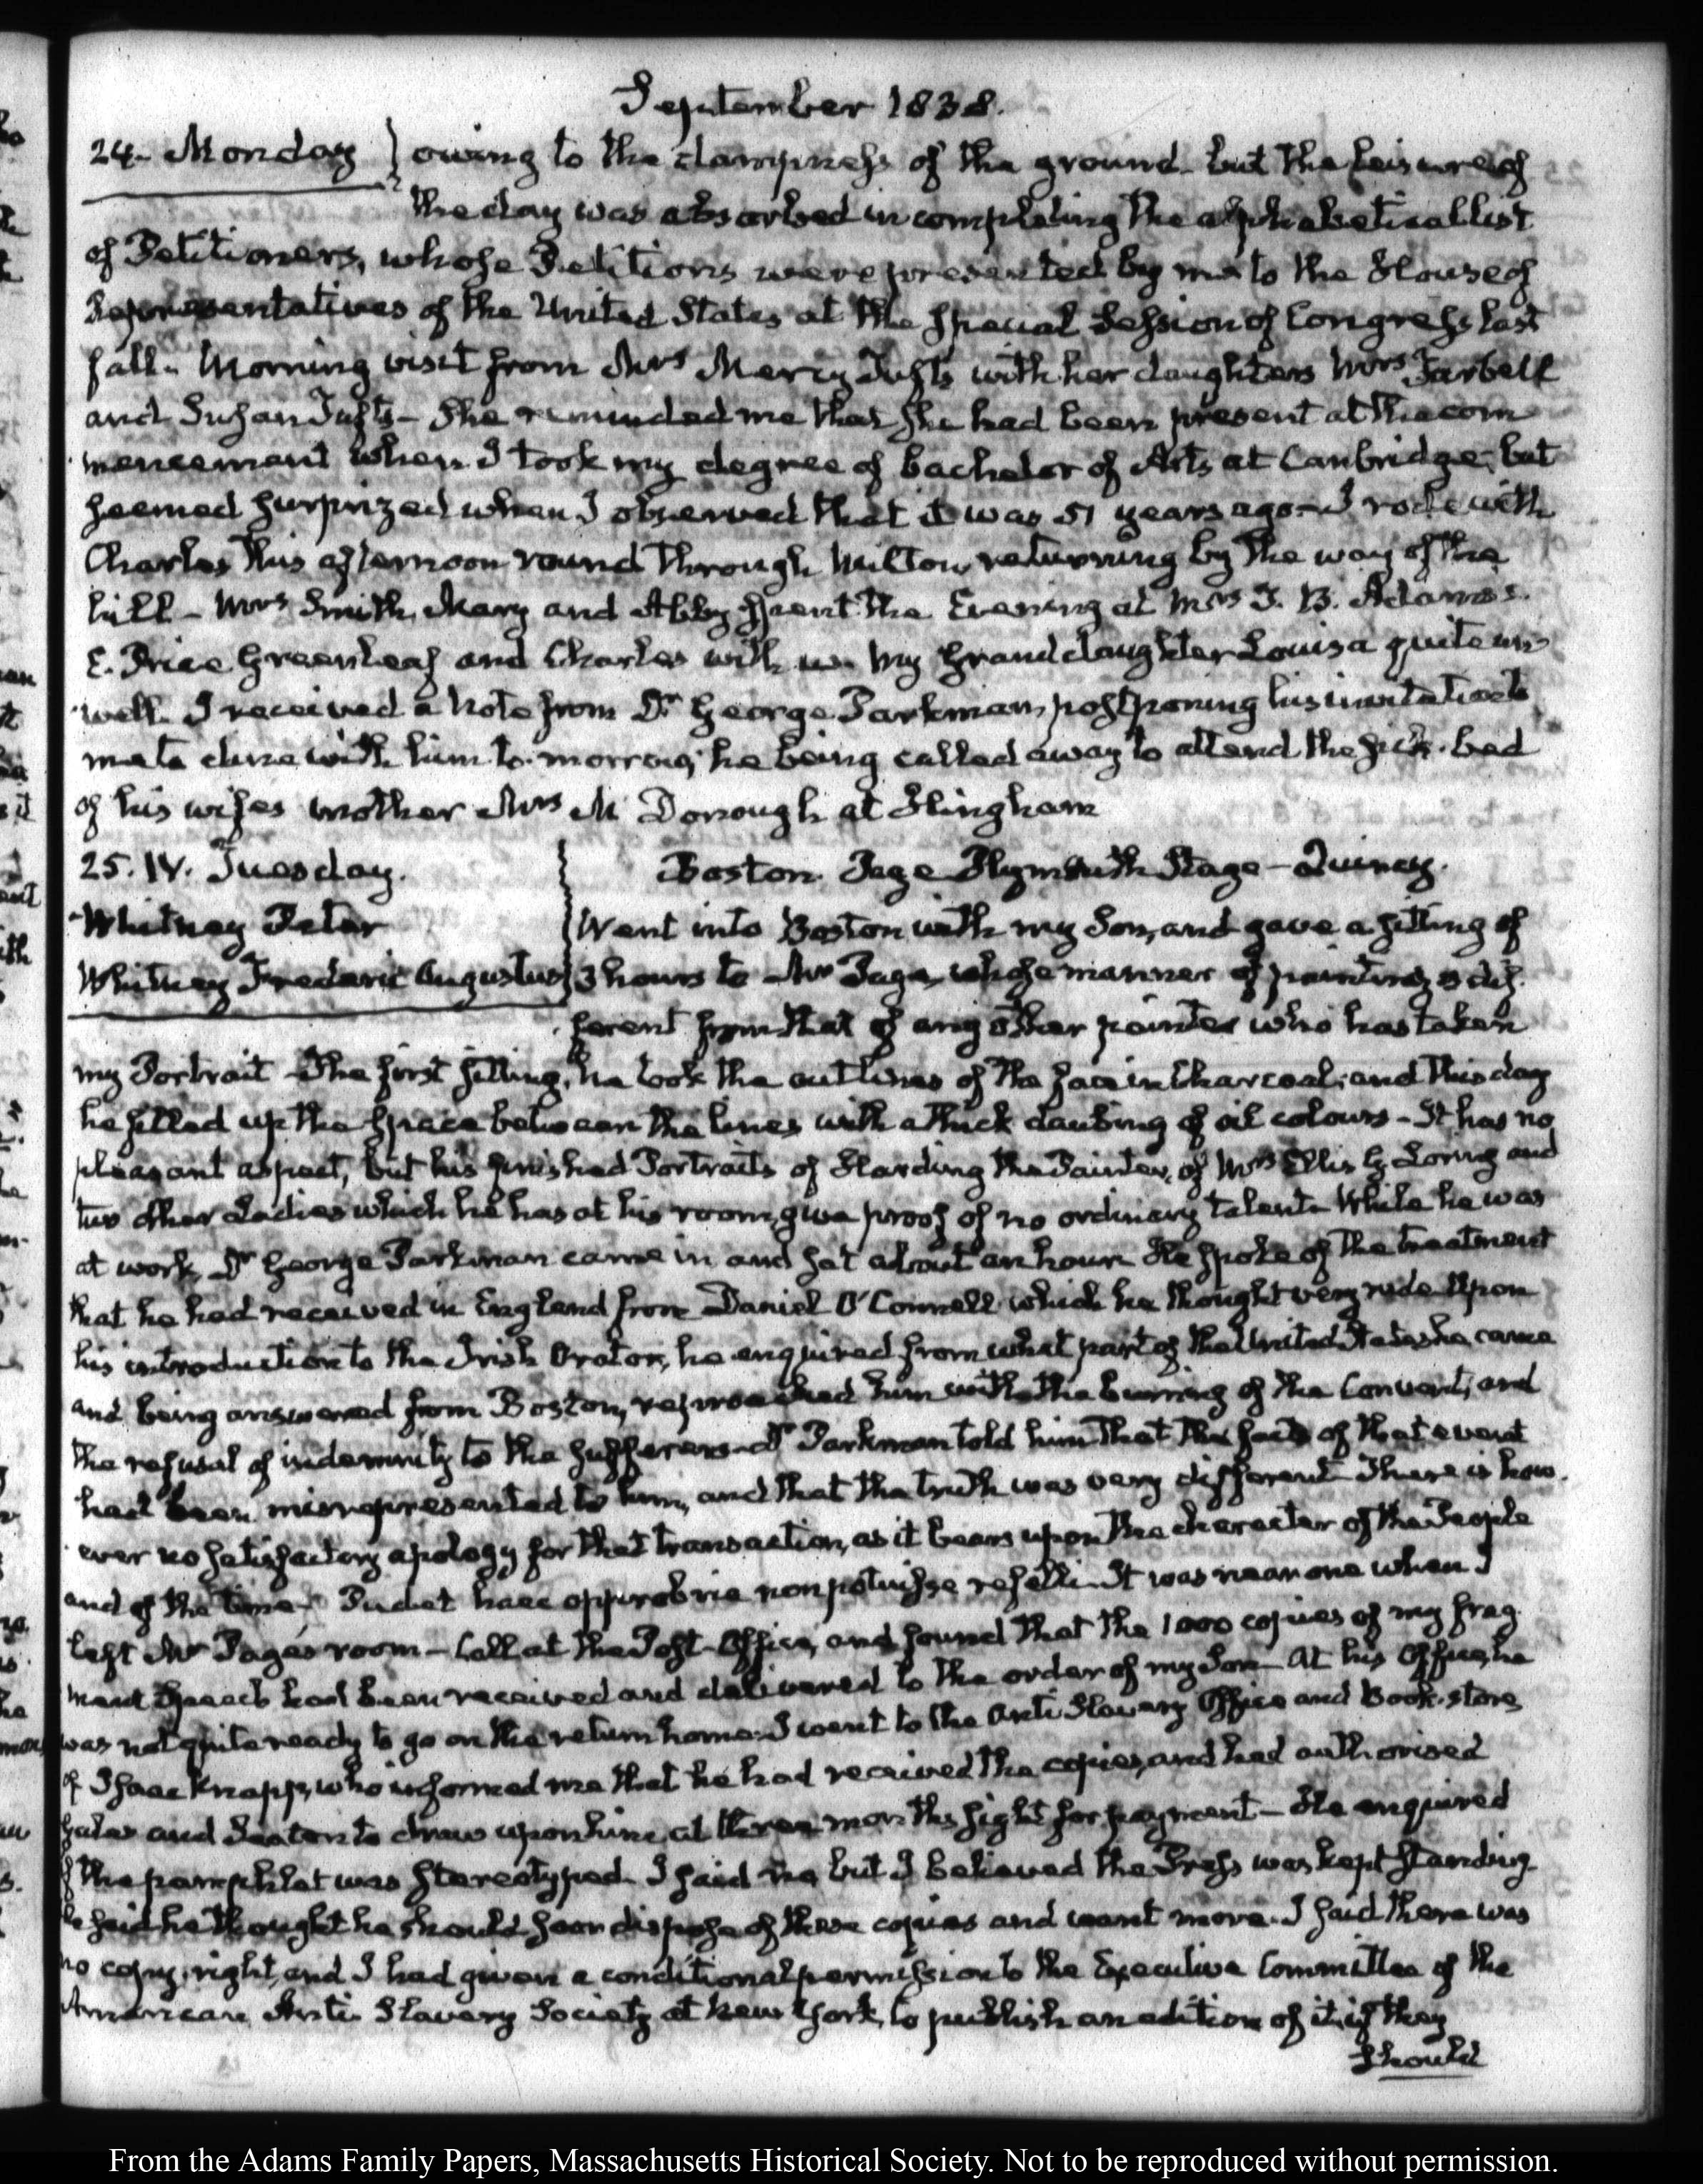 September 1838.
24. Monday } owing to the dampness of the ground. but the leisure of
the day was absorbed in completing the alphabetical list
of Petitioners, whose Petitions were presented by me to the House of
Representatives of the United States at the special Session of Congress last
fall. Morning visit from Mrs Mercy Tufts with her daughters Mrs Tarbell
and Susan Tufts - She reminded me that she had been present at the com
mencement when I took my degree of bachelor of Arts at Cambridge, but
seemed surprized when I observed that it was 51 years ago - I rode with
Charles this afternoon round through Milton, returning by the way of the
hill - Mrs Smith, Mary and Abby spent the Evening at Mrs T. B. Adams's.
E. Price Greenleaf and Charles with us. My Grand daughter Louisa quite un
well. I received a Note from Dr George Parkman, postponing his invitation to
me to dine with him to-morrow; he being called away to attend the sick-bed
of his wifes mother Mrs M Donough at Hingham
25. IV. Tuesday. Boston. Page Plymouth Stage - Quincy.
Whitney Peter } Went into Boston with my Son, and gave a sitting of
Whitney Frederic Augustus } 3 hours to Mr Page, whose manner of painting is dif.
ferent from that of any other painter who has taken
my Portrait - The first sitting, he took the outlines of the face in Charcoal; and this day
he filled up the space between the lines with a thick daubing of oil colours - It has no
pleasant aspect, but his finished Portraits of Harding the Painter, of Mrs Ellis G. Loring and
two other Ladies which he has at his room, give proof of no ordinary talent. While he was
at work, Dr George Parkman came in and sat about an hour. He spoke of the treatment
that he had received in England from Daniel O'Connell which he thought very rude. Upon
his introduction to the Irish Orator, he enquired from what part of the United States he came
and being answered from Boston, reproached him with the burning of the Convent, and
the refusal of indemnity to the sufferers - Dr Parkman told him that the facts of that event
had been misrepresented to him, and that the truth was very different. There is how.
ever no satisfactory apology for that transaction, as it bears upon the character of the People
and of the time - Pudet haec opprobria non potuisse refelli. It was near one when I
left Mr Page's room - Call at the Post-Office, and found that the 1000 copies of my frag
ment Speech had been received and delivered to the order of my Son - At his Office, he
was not quite ready to go on the return home. I went to the Anti Slavery Office and Book-store,
of Isaac Knapp, who informed me that he had received the copies, and had authorised
Gales and Seaton to draw upon him, at three months sight for payment - He enquired
if the pamphlet was stereotyped. I said no, but I believed the Press was kept standing
He said he thought he should soon dispose of these copies and want more. I said there was
no copy-right, and I had given a conditional permission to the Executive Committee of the
American Anti Slavery Society at New York, to publish an edition of it, if they
should
From the Adams Family Papers, Massachusetts Historical Society. Not to be reproduced without permission.